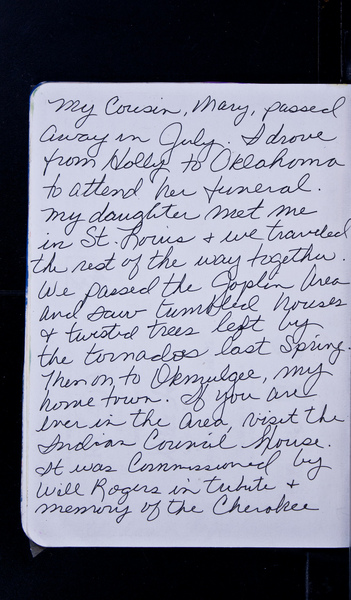 My Cousin, Mary, passed
away in July. I drove
from Holly to Oklahoma
to attend her funeral.
My daughter met me
in St. Louis & we traveled
the rest of the way together.
We passed the Joplin Area
and saw tumbled houses
& twisted trees left by
the tornados last Spring.
Then on to Okmulgee, my
home town. If you are
ever in the area, visit the
Indian Council house.
It was Commissioned by
Will Rogers in tribute &
memory of the Cherokee